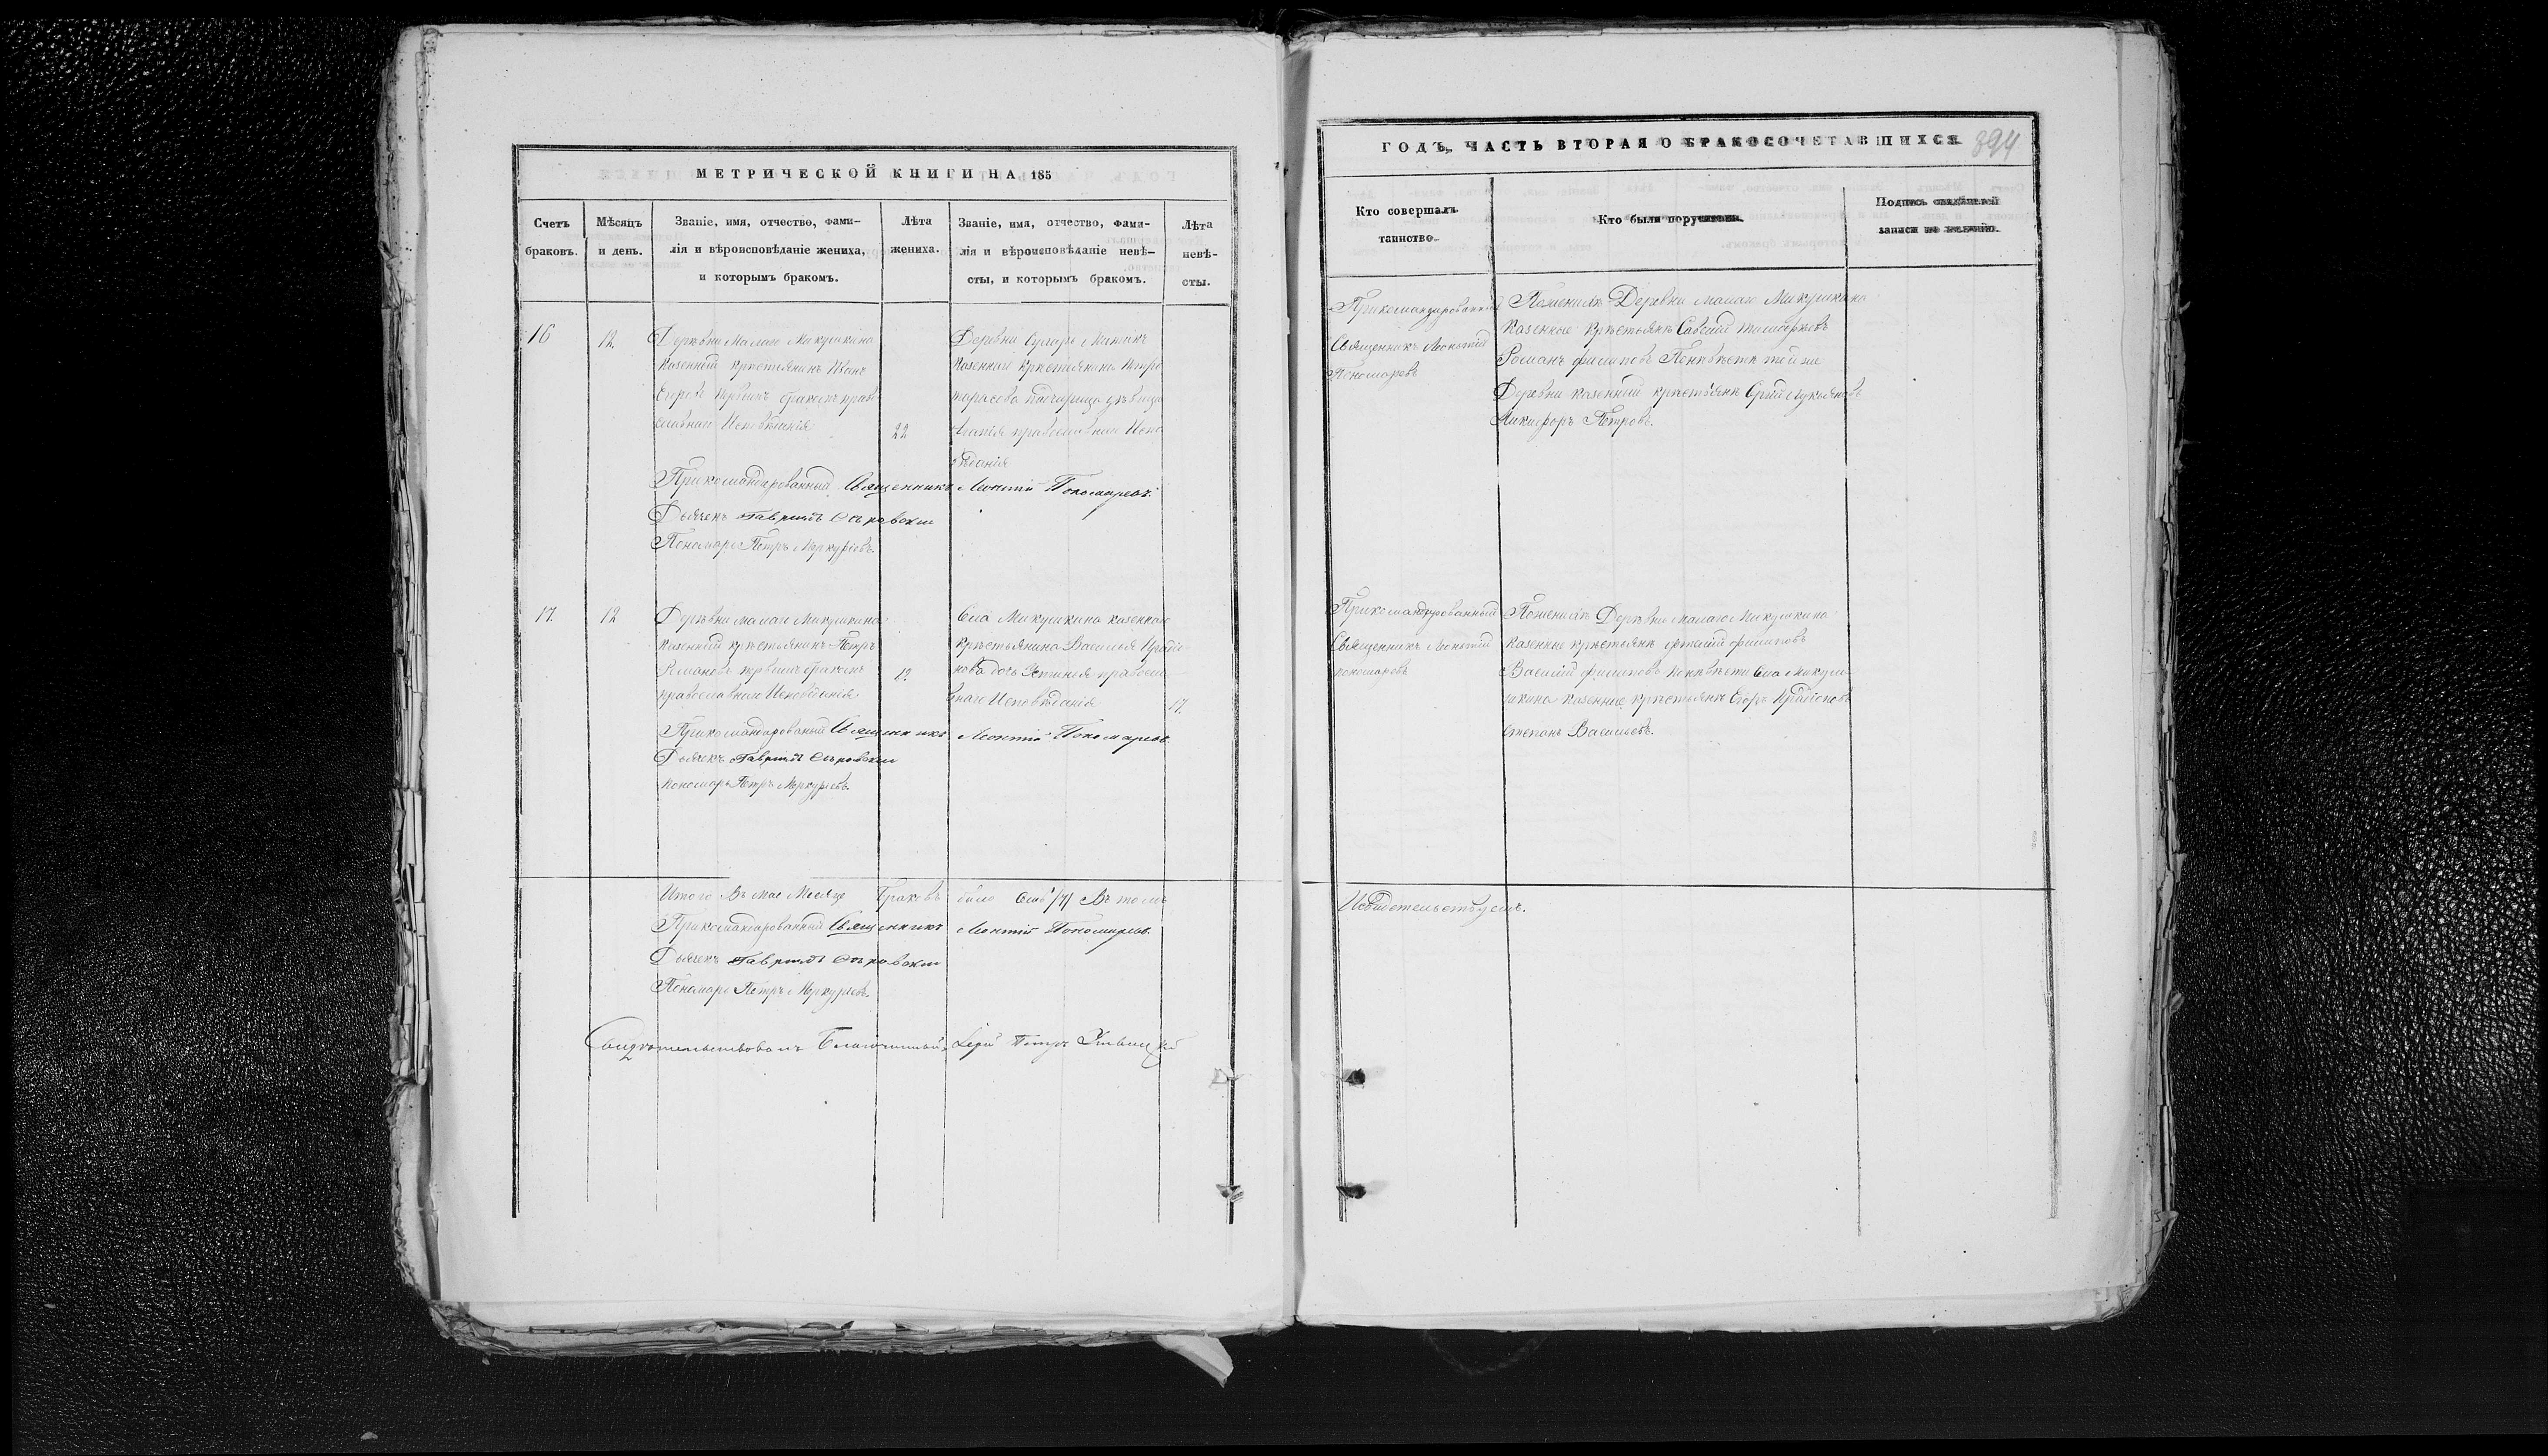 МЕТРИЧЕСКОЙ КНИГИ НА 185
Счетъ браковъ.
Мѣсяцъ и день.
Званіе, имя, отчество, фами-
лія и вѣроисповѣданіе жениха,
и которымъ бракомъ.
Лѣта
жениха.
Званіе, имя, отчество, фами-
лія и вѣроисповѣданіе невѣ-
сты, и которымъ бракомъ.
Лѣта
невѣ-
сты.
16
12.
Деревни Малаго Микушкина
казенный крестьянинъ Иванъ
Егоровъ первымъ бракомъ право
славнаго Исповѣданія
22
Деревни
казеннаго крестьянина Петра
тарасова падчерица дѣвица
православнаго Испо
вѣданія
Прикомандированный Священникъ Леонтій Пономаревъ.
Дьячекъ Гавриилъ
Пономарь Петръ Меркурьевъ.
17.
12
Деревни малаго Микушкина
казенный крестьянинъ Петръ
Романовъ первымъ бракомъ
православнаго Исповѣданія
Села Микушкина казеннаго
крестьянина Василья
дочь православ
наго Исповѣданія
17.
Прикомандированный Священникъ Леонтій Пономаревъ
Дьячекъ Гавриилъ
пономарь Петръ Меркурьевъ.
Итого Въ мае Месяце Браковъ было
Прикомандированный Священникъ Леонтій Пономаревъ.
Дьячекъ Гавриилъ
Пономарь Петръ Меркурьевъ.
Свидѣтельствовалъ Благочинный Іерей Петръ
ГОДЪ, ЧАСТЬ ВТОРАЯ О БРАКОСОЧЕТАВШИХСЯ 394
Кто совершалъ
таинство.
Кто были поручители.
Подпись свидѣтелей
записи по желанію.
Прикомандированный
Священникъ Леонтій
Пономаревъ
По женихѣ Деревни малаго Микушкина
казенные крестьяне Савелій тимофеевъ
Романъ филиповъ По невѣсте той же
Деревни казенный крестьяне
Никифоръ Петровъ.
Прикомандированный
Священникъ Леонтій
пономаревъ
По женихѣ Деревни Малаго Микушкина
казенные крестьяне филиповъ
Василій филиповъ по невѣсте Села Микуш
шкина казенные крестьяне Егоръ
степанъ Васильевъ.